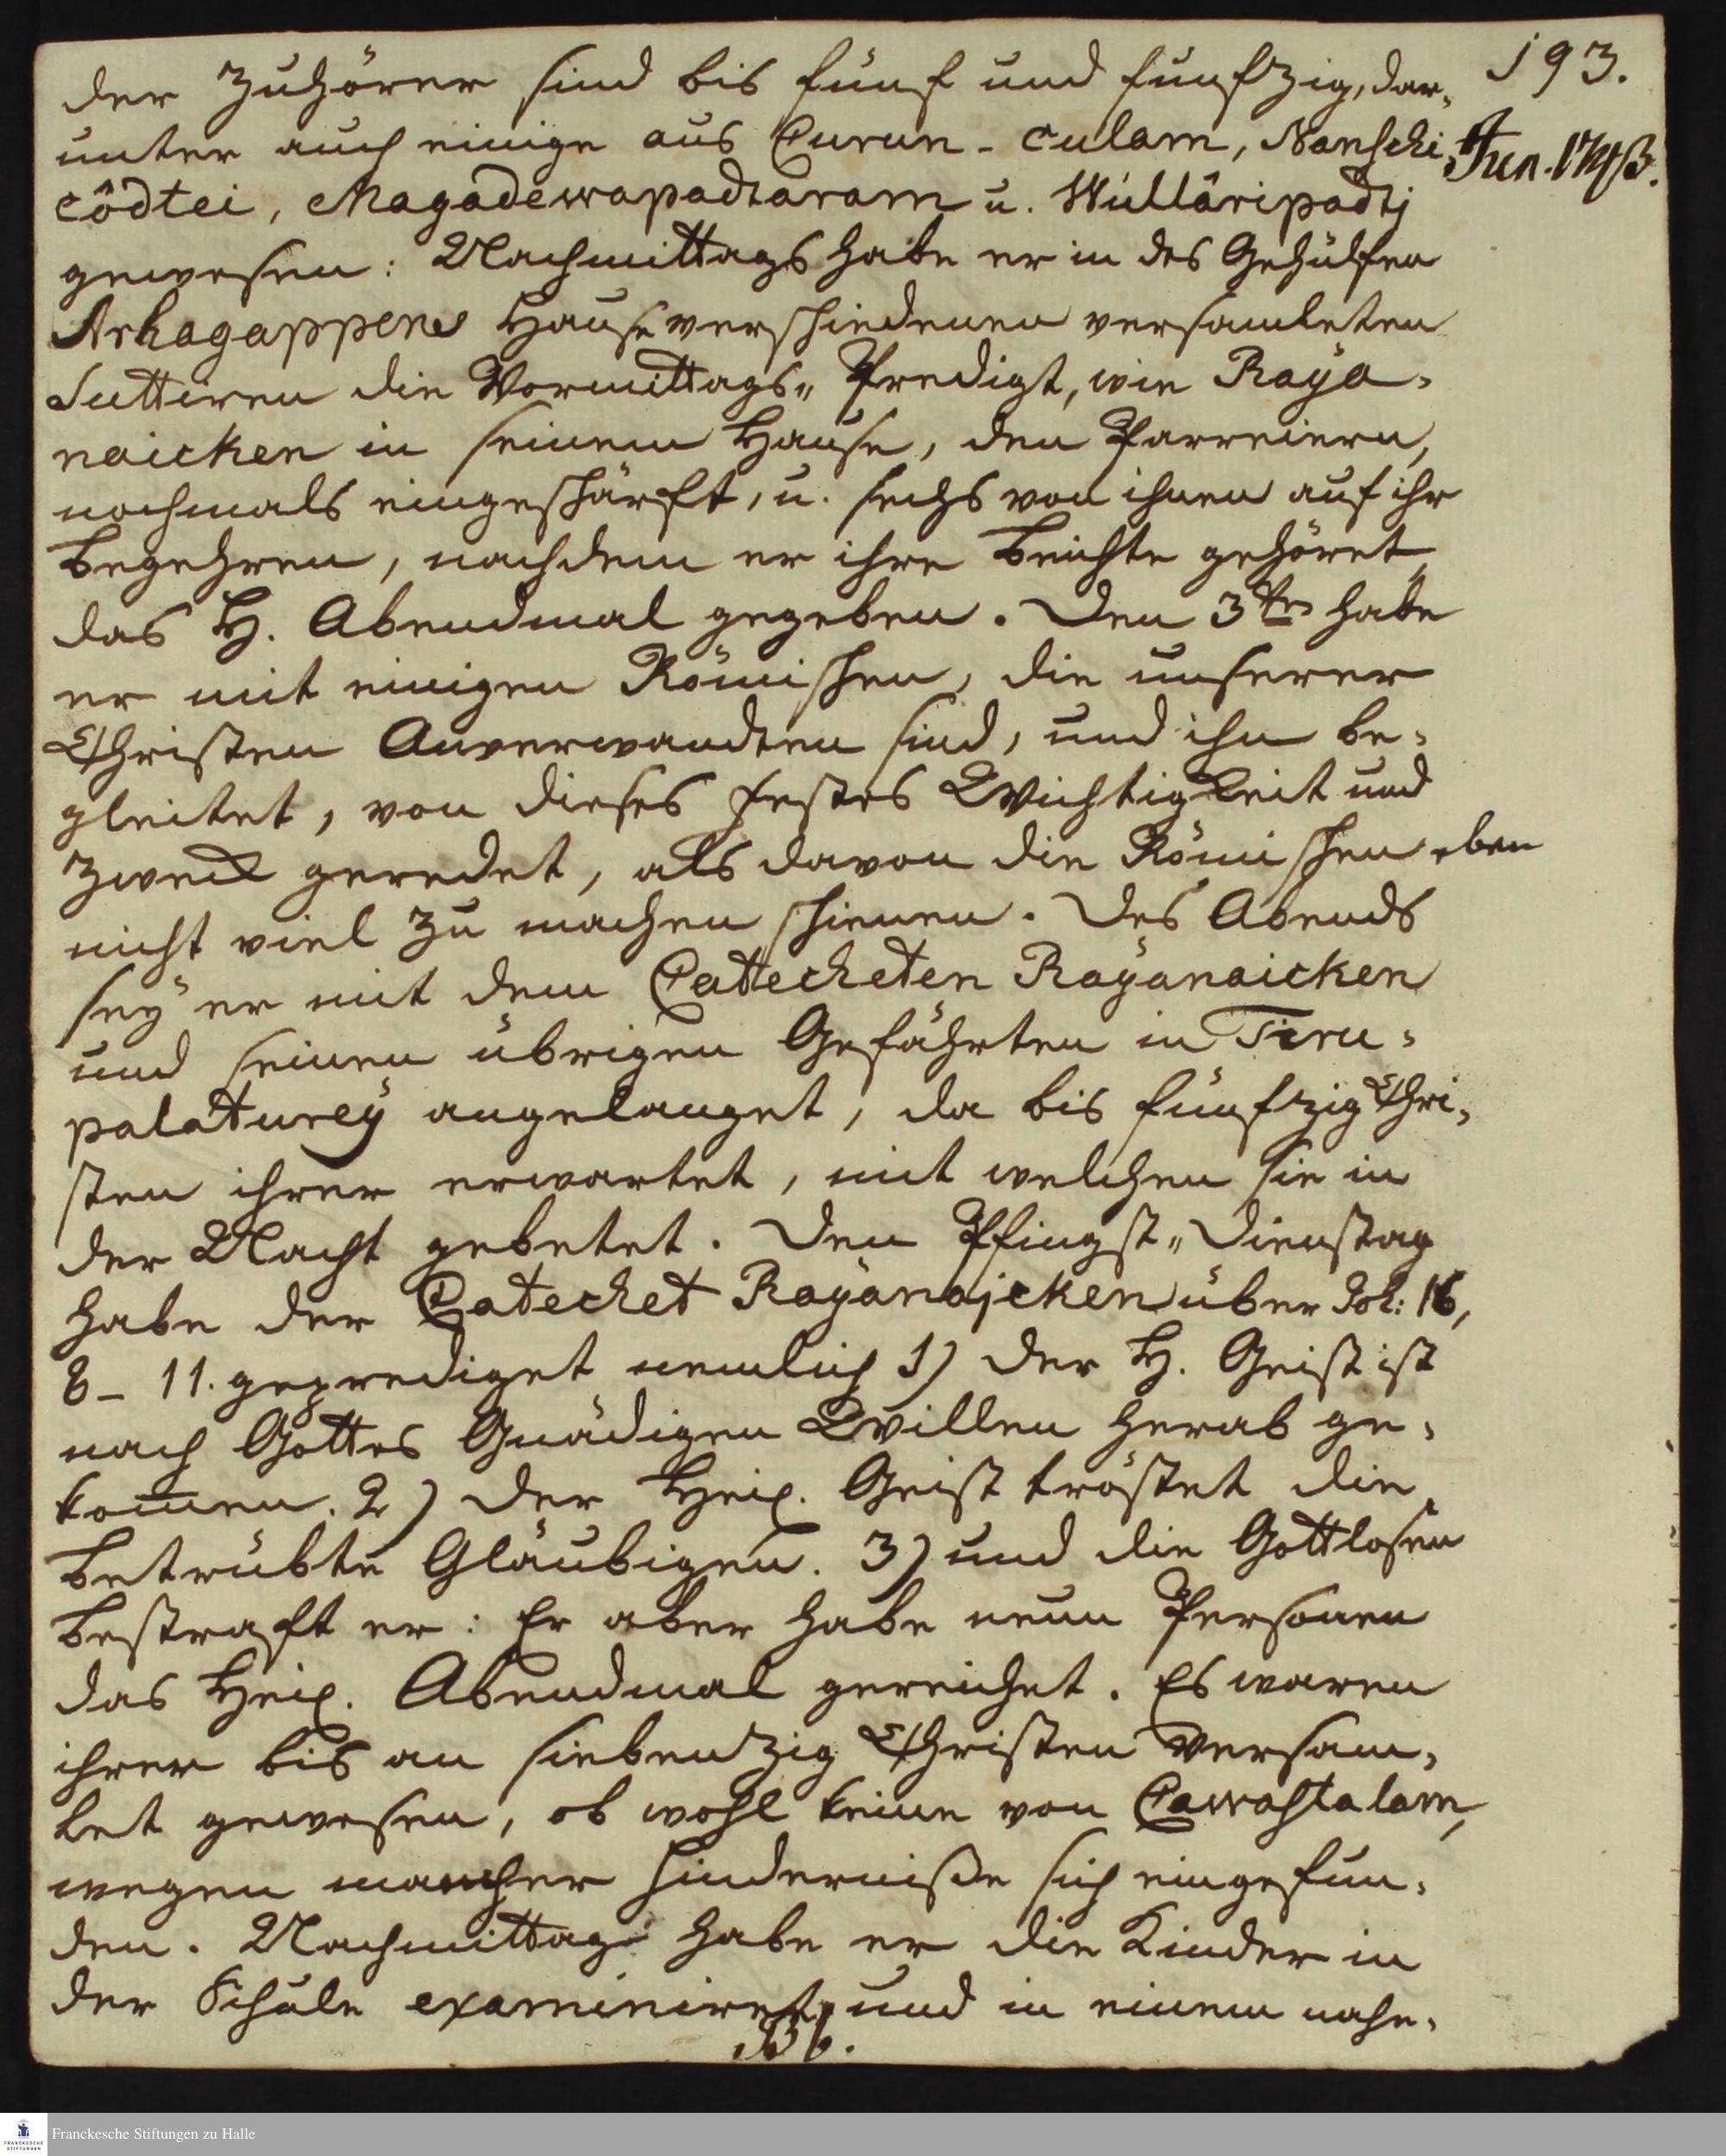 193.
der Zuhörer sind bis fünf und funfzig, dar-
unter auch einige aus Curun-culam, Nanschi-
Jun. 1743.
côdtei, Magadewapadtaram u. Wüllâripadtj
gewesen: Nachmittags habe er in des Gehülfen
Arhagappens Hause verschiedenen versamleten
Suttiren die Vormittags-Predigt, wie Raya-
naicken in seinem Hause, den Parreiern,
nochmals eingeschärft, u. sechs von ihnen auf ihr
Begehren, nachdem er ihre Beichte gehöret,
das H. Abendmal gegeben. Den 3ten habe
er mit einigen Römischen, die unserer
Christen Anverwandten sind, und ihn be-
gleitet, von dieses Festes Wichtigkeit und
Zweck geredet, als davon die Römischen eben
nicht viel zu machen schienen. Des Abends
seÿ er mit dem Catecheten Rayanaicken
und seinen übrigen Gefährten in Tiru-
palatureÿ angelanget, da bis fünfzig Chri-
sten ihrer erwartet, mit welchen sie in
der Nacht gebetet. Den Pfingst-Dienstag
habe der Catechet Rayanajcken über Joh: 16,
8-11. geprediget nemlich 1) der H. Geist ist
nach Gottes Gnädigen Willen herab ge-
kommen. 2) der Heil. Geist tröstet die
Betrübte Gläubigen. 3) und die Gottlosen
bestraft er: Er aber habe neun Personen
das Heil. Abendmal gereichet. Es waren
ihrer bis an siebenzig Christen versam-
let gewesen, ob wohl keine von Cawastalam,
wegen mancher Hinderniße sich eingefun-
den. Nachmittag habe er die Kinder in
der Schule examiniret, und in einem nahe-
Bb.
Franckesche Stiftungen zu Halle